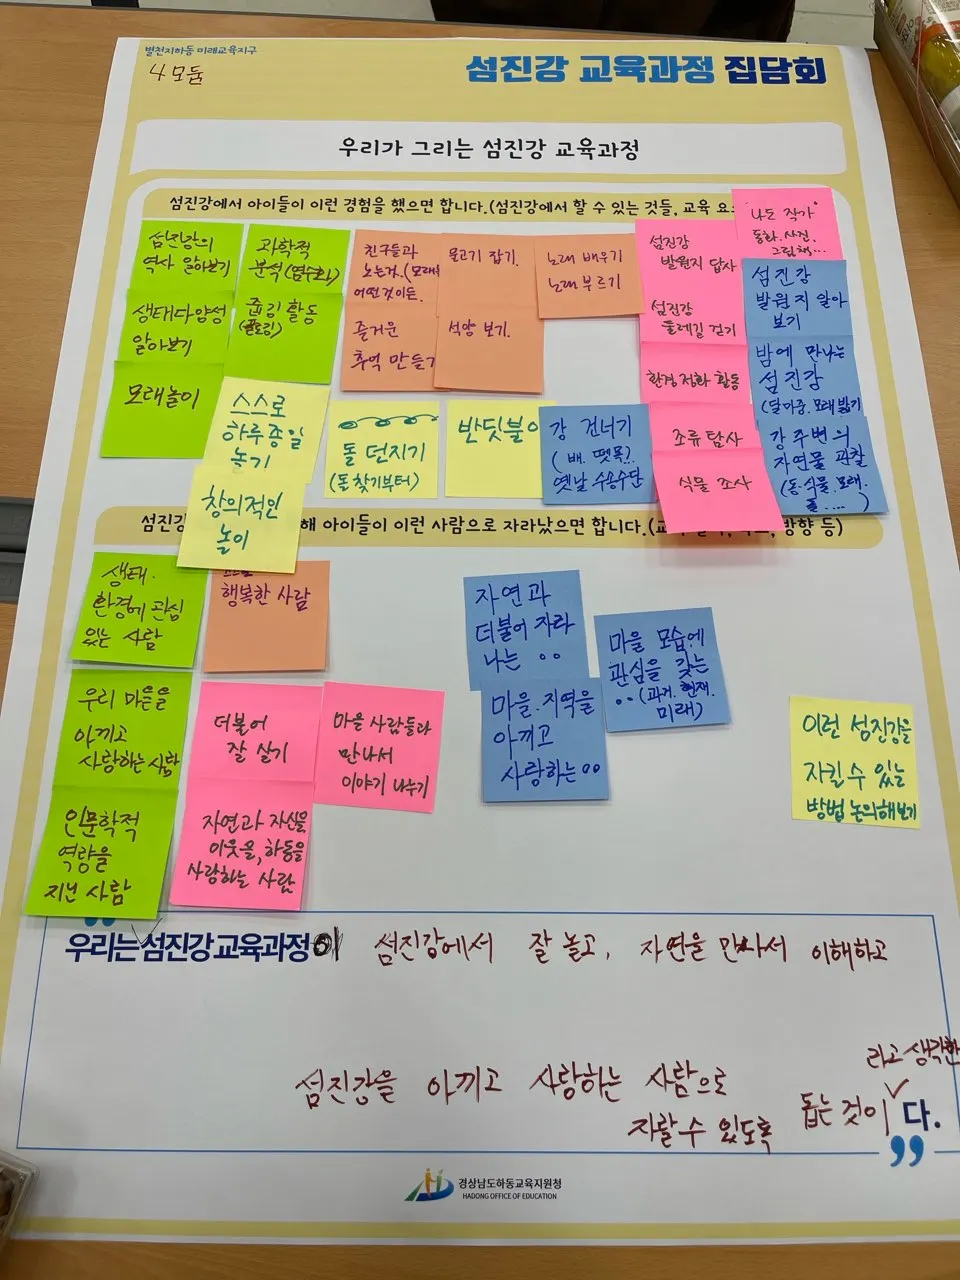 별천지하동 미래교육지구
4모둠
섬진강 교육과정 집담회
우리가 그리는 섬진강 교육과정
섬진강에서 아이들이 이런 경험을 했으면 합니다.(섬진강에서 할 수 있는 것들, 교육 요
섬진강의
역사 알아보기
생태다양성
알아보기
모래놀이
과학적
분석(염수화)
줍깅 활동
(플로깅)
스스로
하루종일
놀기
창의적인
놀이
친구들과
노는거.(모래
어떤것이든.
즐거운
추억 만들기
물고기 잡기.
석양 보기.
노래 배우기
노래 부르기
돌 던지기
(돌 찾기부터)
반딧불이
강 건너기
(배. 뗏목).
옛날 수송수단
섬진강
발원지 답사
섬진강
둘레길 걷기
환경정화 활동
조류 탐사
식물 조사
"나도 작가"
동화.사진.
그림책...
섬진강
발원지 알아
보기
밤에 만나는
섬진강
(달마중.모래 밟기
강 주변의
자연물 관찰
(동.식물.모래.
돌....)
섬진강
해 아이들이 이런 사람으로 자라났으면 합니다.
방향 등)
생태.
환경에 관심
있는 사람
우리 마을을
아끼고
사랑하는 사람
인문학적
역량을
지닌 사람
행복한 사람
더불어
잘 살기
자연과 자신을
이웃을, 하동을
사랑하는 사람
마을 사람들과
만나서
이야기 나누기
자연과
더불어 자라
나는 ㅇㅇ
마을.지역을
아끼고
사랑하는ㅇㅇ
마을 모습에
관심을 갖는
ㅇㅇ(과거.현재.
미래)
이런 섬진강을
지킬 수 있는
방법 논의해보기
우리는 섬진강 교육과정이 섬진강에서 잘 놀고, 자연을 만나서 이해하고
섬진강을 아끼고 사랑하는 사람으로
자랄 수 있도록 돕는 것이 라고 생각한 다.
경상남도하동교육지원청
HADONG OFFICE OF EDUCATION